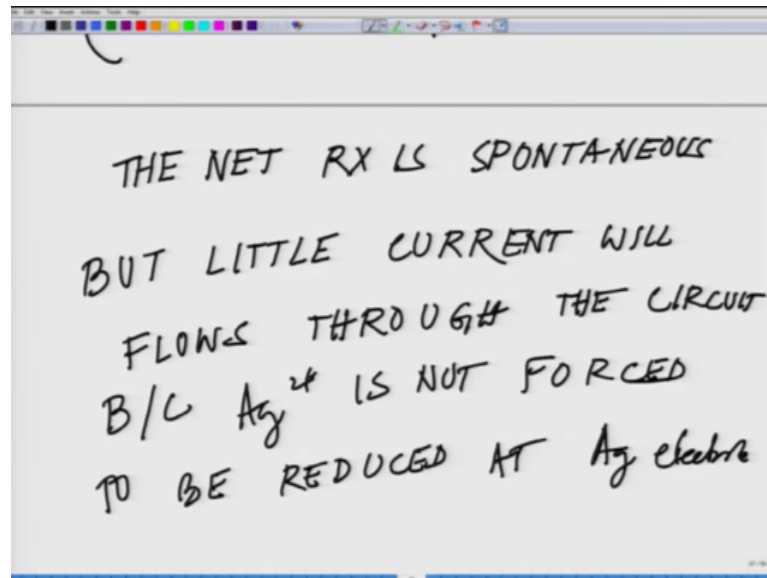 THE NET RX IS SPONTANEOUS
BUT LITTLE CURRENT WILL
FLOWS THROUGH THE CIRCUIT
B/C Ag²⁺ IS NOT FORCED
TO BE REDUCED AT Ag electrode